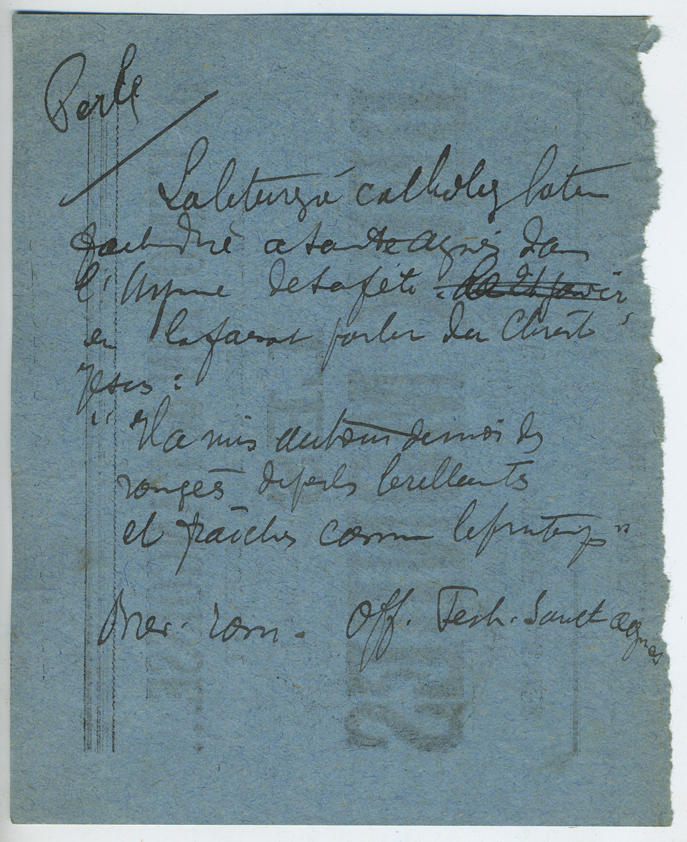 Perle
La liturgie catholiq latine
fait dire a sainte Agnès dans
l'hymne de sa fete
en la faisant parler du Christ
Jesus :
"Il a mis autour de moi des
rangées de perles brillants
et fraîches comme le printemps"
Brev. rom. Off. Festi. Sanct Agnes